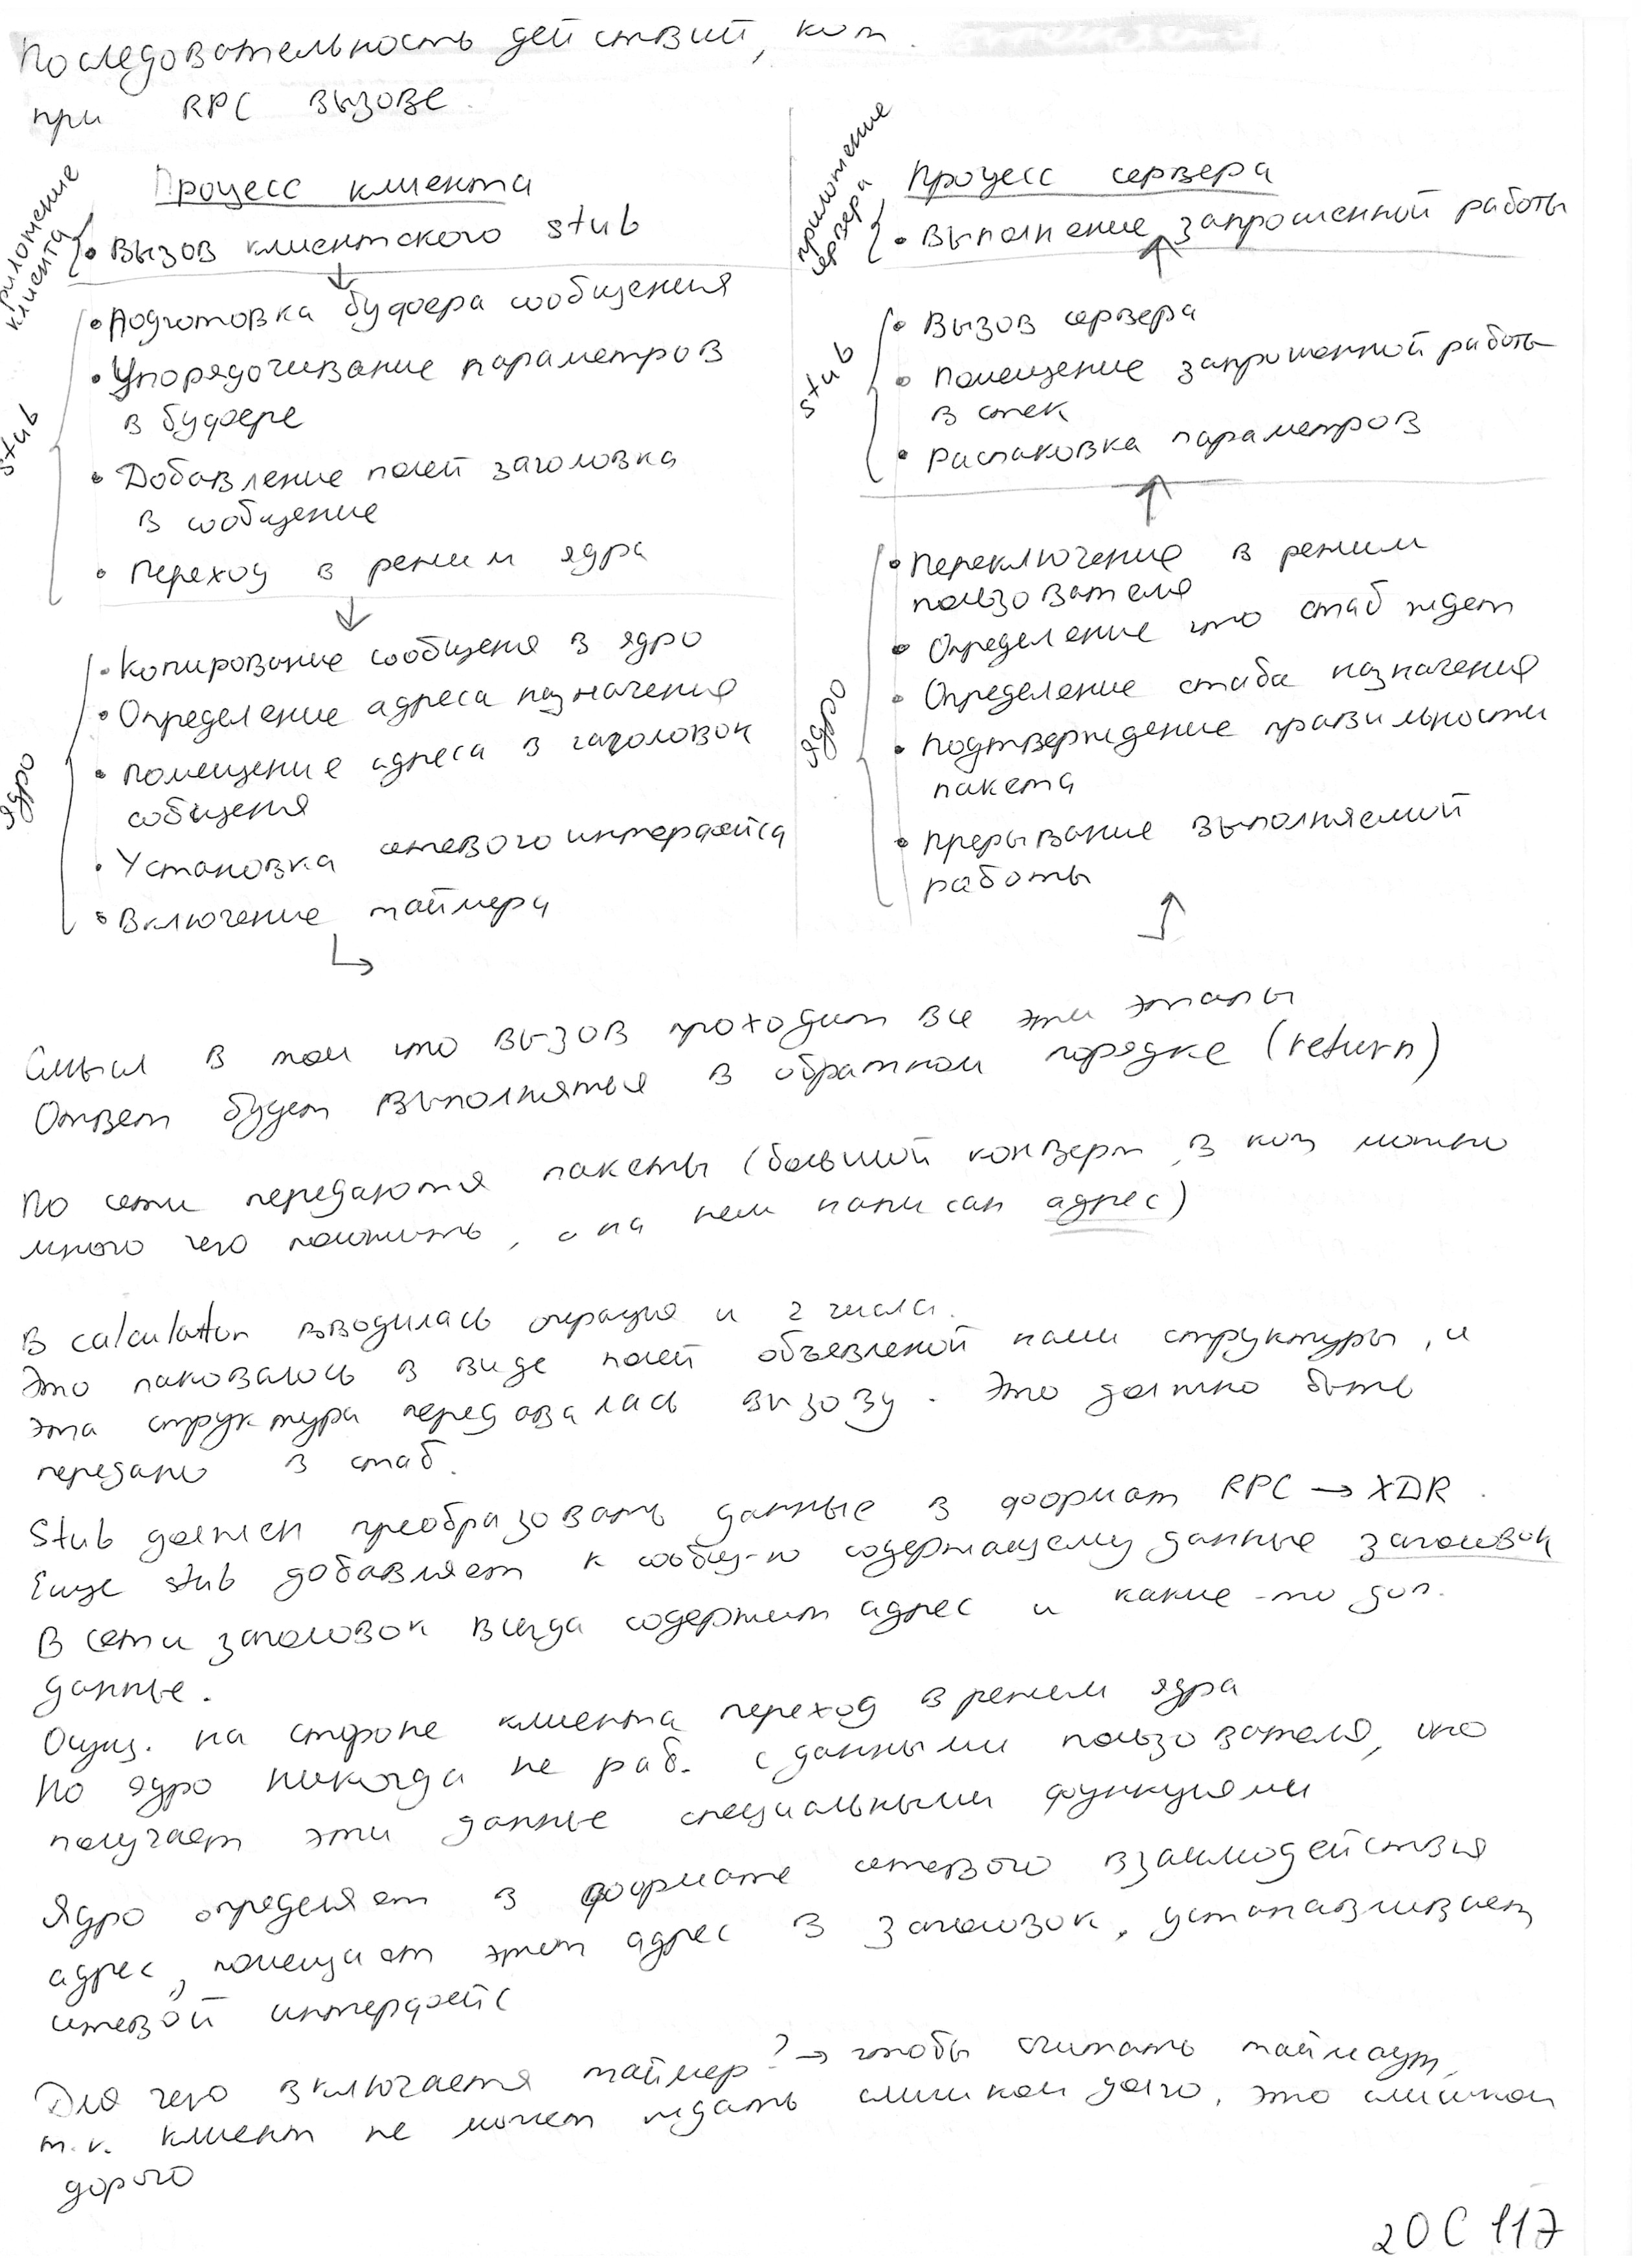 Последовательность действий, кот.
при RPC вызове.
Процесс клиента
приложение
клиента
• Вызов клиентского stub
stub
• Подготовка буфера сообщения
• Упорядочивание параметров
в буфере
• Добавление полей заголовка
в сообщение
• Переход в режим ядра
ядро
• Копирование сообщеня в ядро
• Определение адреса назначения
• Помещение адреса в заголовок
собщеня
• Установка сетевого интерфейса
• Включение таймера
Процесс сервера
приложение
сервера
• Выполнение запрошенной работы
stub
• Вызов сервера
• Помещение запрошенной работы
в стек
• Распаковка параметров
ядро
• Переключение в режим
пользователя
• Определение что стаб ждет
• Определение стаба назначения
• Подтверждение правильности
пакета
• Прерывание выполняемой
работы
Смысл в том что вызов проходит все эти этапы
Ответ будет выполняться в обратном порядке (return)
По сети передаются пакеты (большой конверт, в кот можно
много чего положить, а на нем написан адрес)
В calculator вводилась операция и 2 числа.
Это паковалось в виде полей объявленой нами структуры, и
эта структура передавалась вызову. Это должно быть
передано в стаб.
Stub должен преобразовать данные в формат RPC → XDR.
Еще stub добавляет к сообщ-ю содержащему данные заголовок
В сети заголовок всегда содержит адрес и какие-то доп.
данные.
Осущ. на стороне клиента переход в режим ядра
Но ядро никогда не раб. с данными пользователя, оно
получает эти данные специальными функциями
Ядро определяет в формате сетевого взаимодействия
адрес, помещает этот адрес в заголовок, устанавливает
сетевой интерфейс
Для чего включается таймер? → чтобы считать таймаут,
т.к. клиент не может ждать слишком долго, это слишком
дорого
20С 117